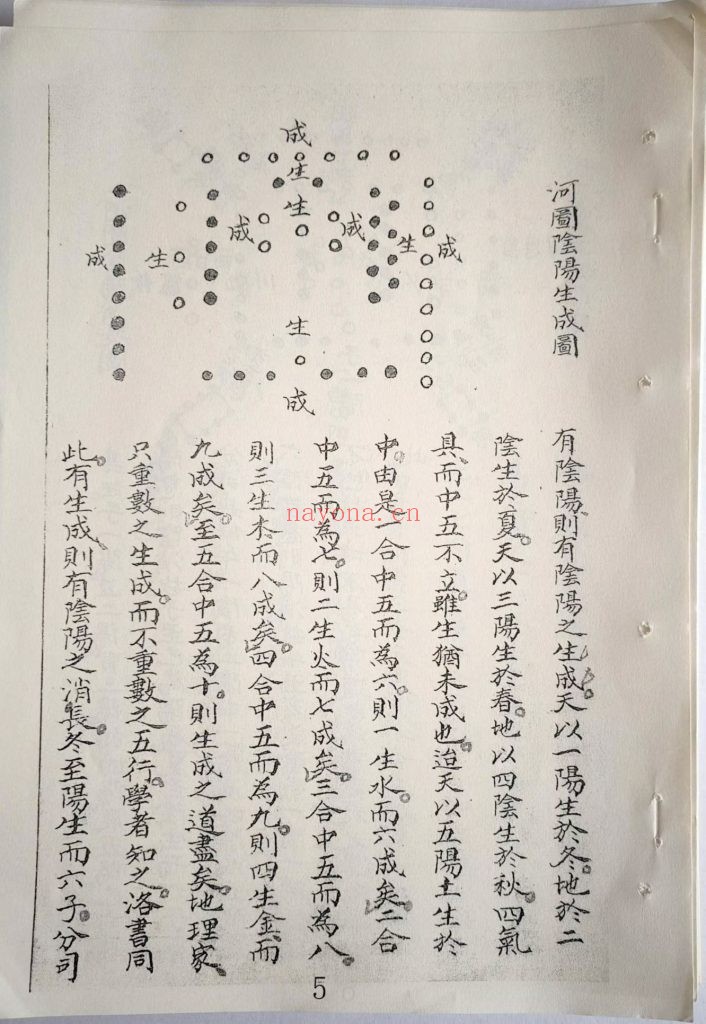 河圖陰陽生成圖
成
生
生
成
成
生
成
生
成
生
成
有陰陽則有陰陽之生成天以一陽生於冬。地於二
陰生於夏。天以三陽生於春。地以四陰生於秋。四氣
具而中五不立。雖生猶未成也。迨天以五陽土生於
中。由是一合中五而為六。則一生水而六成矣。二合
中五而為七。則二生火而七成矣。三合中五而為八。
則三生木而八成矣。四合中五而為九。則四生金而
九成矣。至五合中五為十。則生成之道盡矣。地理家
只重數之生成。而不重數之五行。學者知之。洛書同
此。有生成則有陰陽之消長。冬至陽生而六子。分司
nayona.cn
5